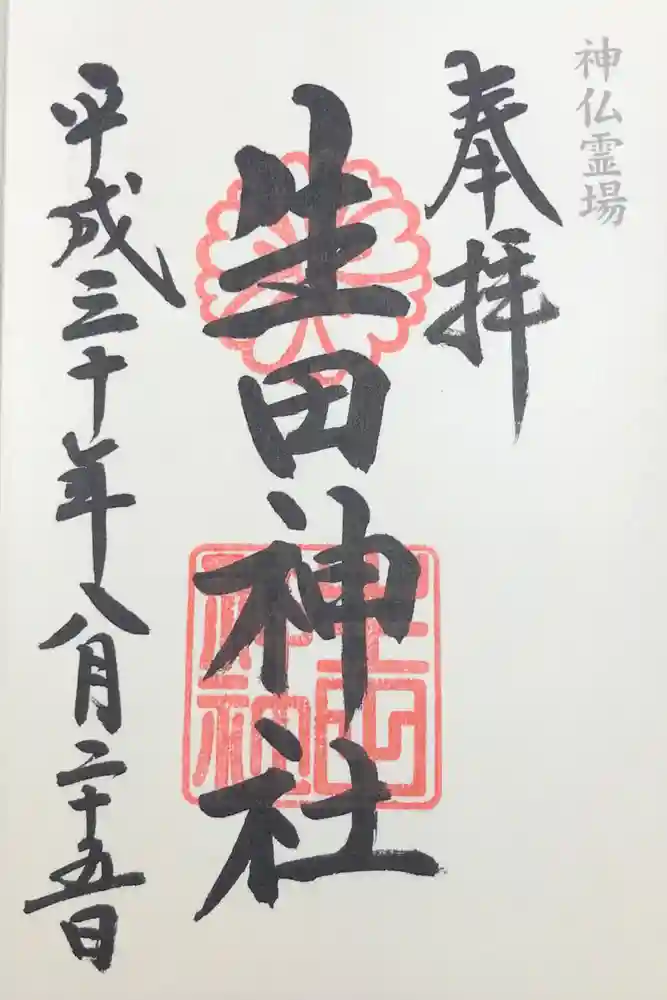 神仏霊場
奉拝
生田神社
生田
神社
平成三十年八月二十五日